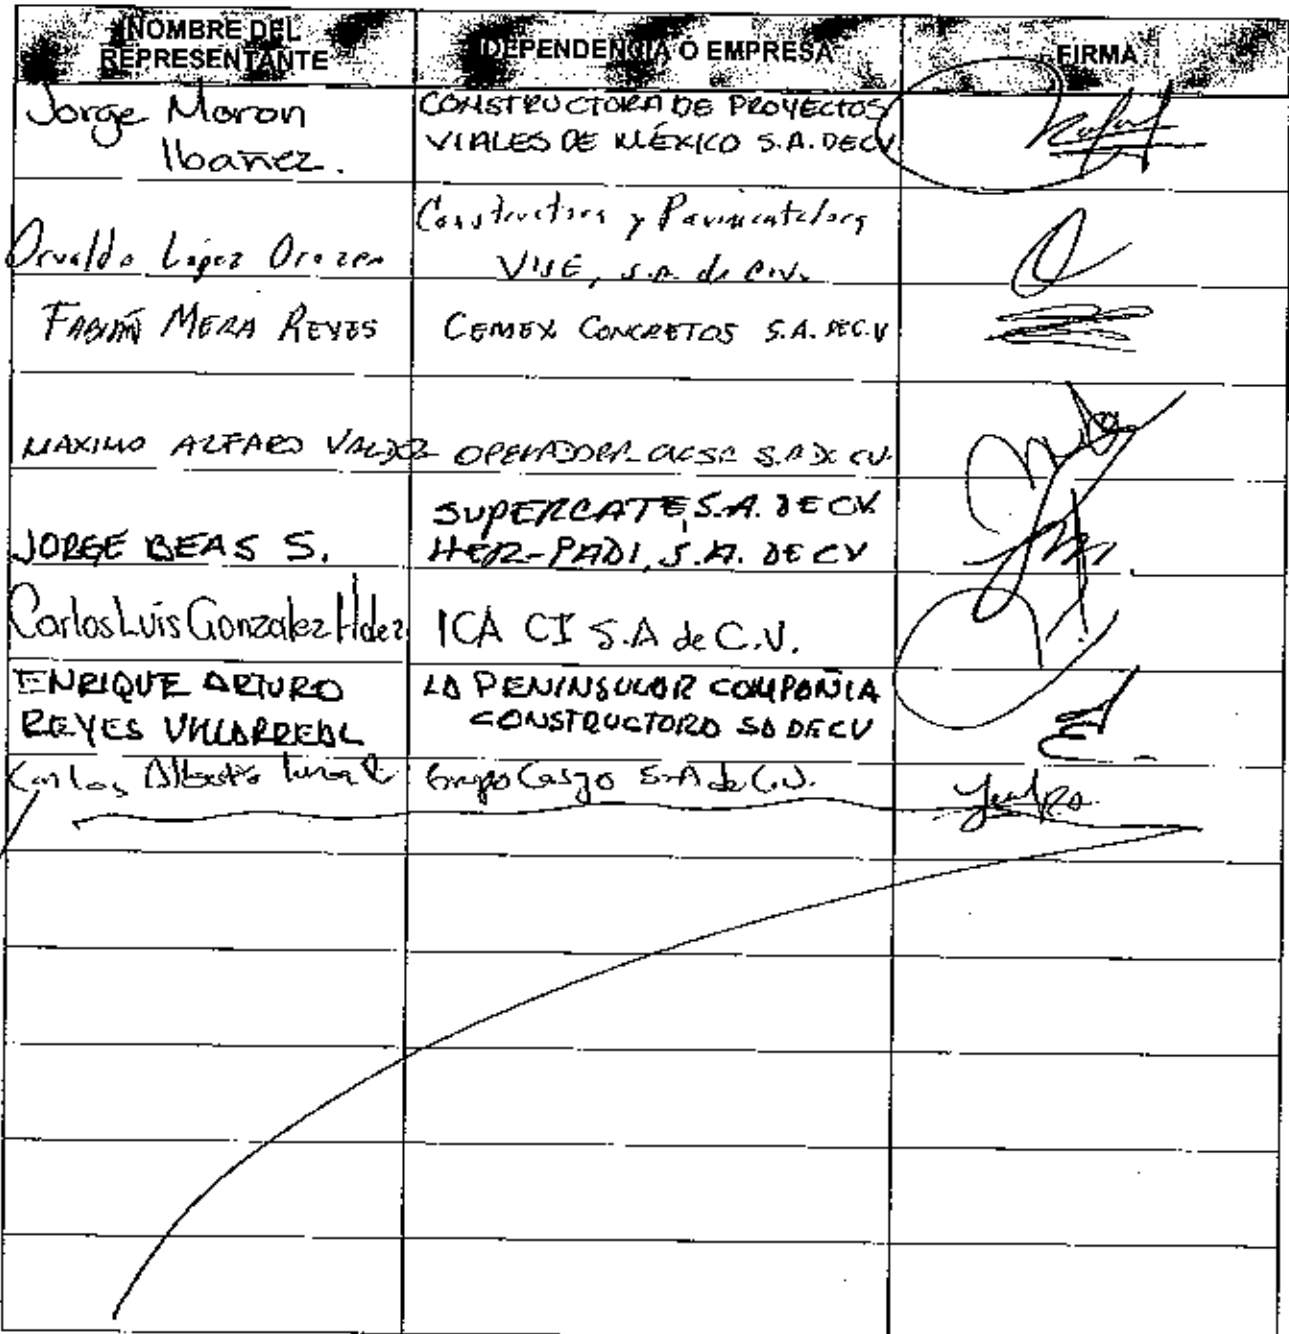 NOMBRE DEL
REPRESENTANTE
DEPENDENCIA O EMPRESA
FIRMA
Jorge Moron
Ibañez.
CONSTRUCTORA DE PROYECTOS
VIALES DE MÉXICO S.A. DE CV
Osvaldo López Orozco
Constructora y Pavimentadora
VISE, S.A. de C.V.
FABIÁN MERA REYES
CEMEX CONCRETOS S.A. DE C.V
MAXIMO ALFARO VALDEZ
OPERADORA CICSA S.A DE CV
JORGE BEAS S.
SUPERCATE, S.A. DE CV.
HER-PADI, S.A. DE CV
Carlos Luis Gonzalez Hdez
ICA CI S.A de C.V.
ENRIQUE ARTURO
REYES VILLARREAL
LA PENINSULAR COMPAÑIA
CONSTRUCTORA SA DE CV
Carlos Alberto Luna R
Grupo Casgo S.A de C.V.